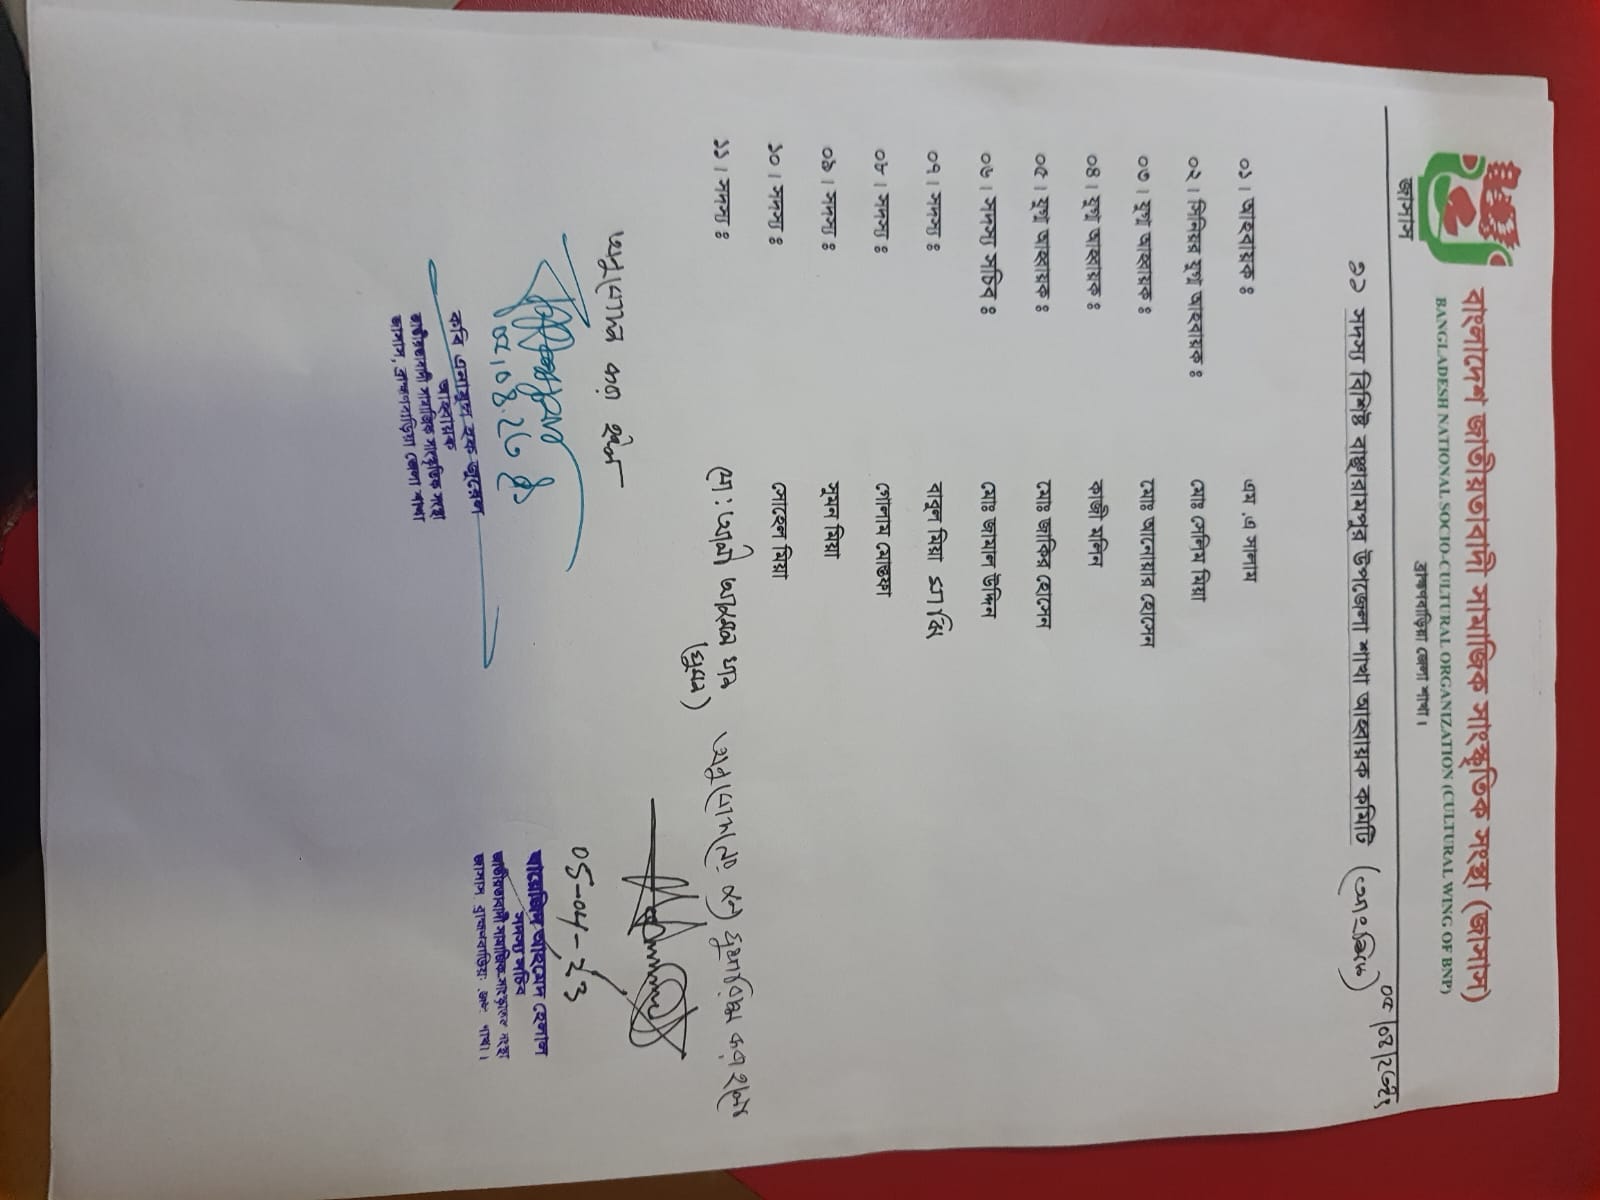 জাসাস
বাংলাদেশ জাতীয়তাবাদী সামাজিক সাংস্কৃতিক সংস্থা (জাসাস)
BANGLADESH NATIONAL SOCIO-CULTURAL ORGANIZATION (CULTURAL WING OF BNP)
ব্রাহ্মণবাড়িয়া জেলা শাখা।
১১ সদস্য বিশিষ্ট বাঞ্ছারামপুর উপজেলা শাখা আহ্বায়ক কমিটি (আংশিক)
০১। আহবায়ক ঃ এম.এ সালাম
০২। সিনিয়র যুগ্ম আহবায়ক ঃ মোঃ সেলিম মিয়া
০৩। যুগ্ম আহ্বায়ক ঃ মোঃ আনোয়ার হোসেন
০৪। যুগ্ম আহ্বায়ক ঃ কাজী মলিন
০৫। যুগ্ম আহ্বায়ক ঃ মোঃ জাকির হোসেন
০৬। সদস্য সচিব ঃ মোঃ জামাল উদ্দিন
০৭। সদস্য ঃ বাবুল মিয়া
০৮। সদস্য ঃ গোলাম মোস্তফা
০৯। সদস্য ঃ সুমন মিয়া
১০। সদস্য ঃ সোহেল মিয়া
১১। সদস্য ঃ মো:
অনুমোদন করা হইল
05-04-23
কবি এনামুল হক জুয়েল
আহ্বায়ক
জাতীয়তাবাদী সামাজিক সাংস্কৃতিক সংস্থা
জাসাস, ব্রাহ্মণবাড়িয়া জেলা শাখা
আহমেদ হেলাল
সদস্য সচিব
জাতীয়তাবাদী সামাজিক সাংস্কৃতিক সংস্থা
জাসাস ব্রাহ্মণবাড়িয়া শাখা।